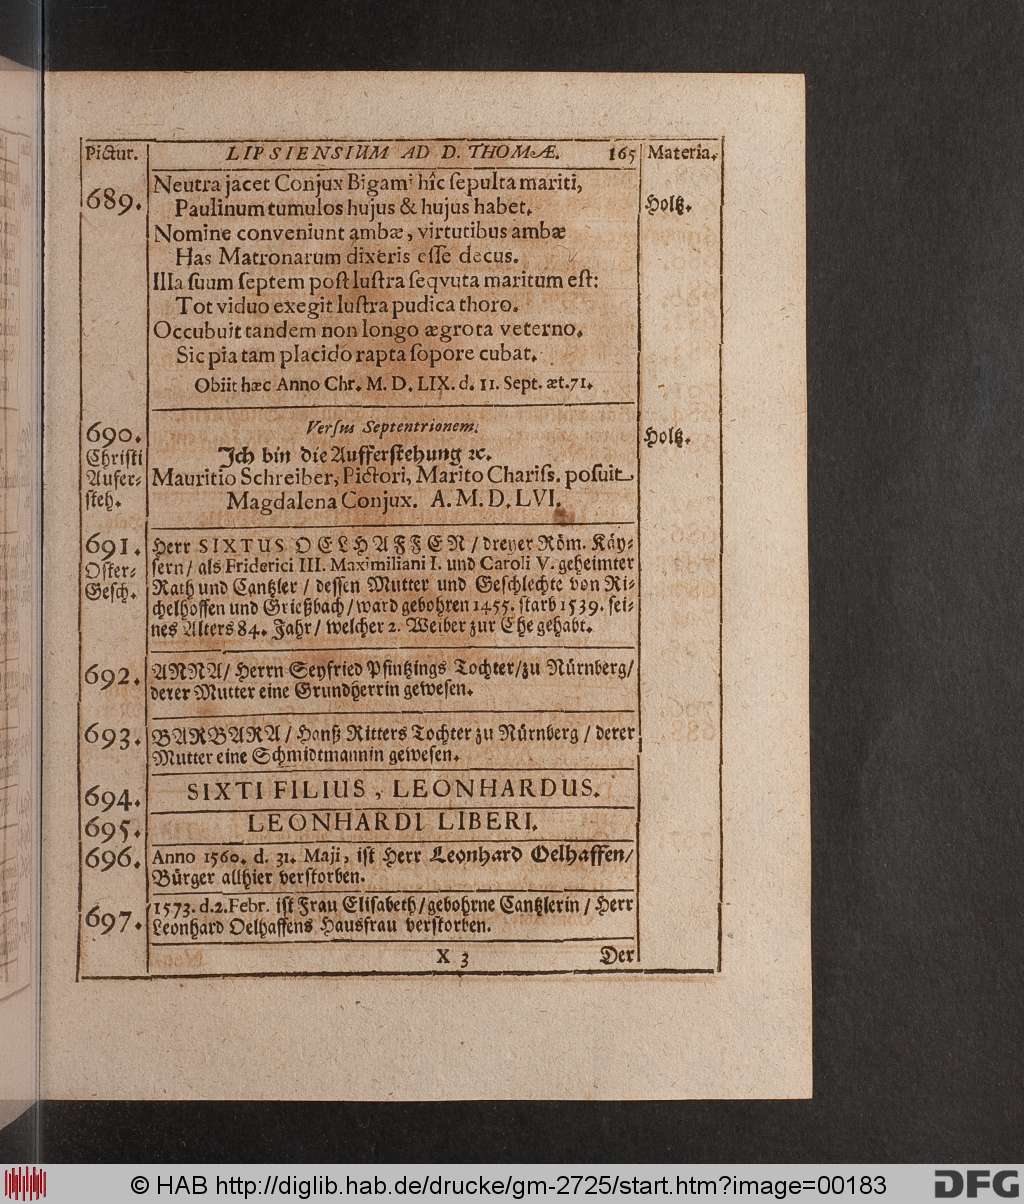 Pictur. LIPSIENSIUM AD D. THOMÆ. 165 Materia.
689. Neutra jacet Conjux Bigami hîc ſepulta mariti, Holtz.
Paulinum tumulos hujus & hujus habet.
Nomine conveniunt ambæ, virtutibus ambæ
Has Matronarum dixeris eſſe decus.
Illa ſuum ſeptem poſt luſtra ſeqvuta maritum eſt:
Tot viduo exegit luſtra pudica thoro.
Occubuit tandem non longo ægrota veterno.
Sic pia tam placido rapta ſopore cubat.
Obiit hæc Anno Chr. M. D. LIX. d. 11. Sept. æt. 71.
690. Verſus Septentrionem. Holtz.
Chriſti Ich bin die Aufferſtehung ꝛc.
Aufer- Mauritio Schreiber, Pictori, Marito Chariſs. poſuit
ſteh. Magdalena Conjux. A. M. D. LVI.
691. Herr SIXTUS OELHAFFEN / dreyer Röm. Käy-
Oſter- ſern / als Friderici III. Maximiliani I. und Caroli V. geheimter
Geſch. Rath und Cantzler / deſſen Mutter und Geſchlechte von Ri-
chelhoffen und Grießbach / ward gebohren 1455. ſtarb 1539. ſei-
nes Alters 84. Jahr / welcher 2. Weiber zur Ehe gehabt.
692. ANNA / Herrn Seyfried Pfintzings Tochter / zu Nürnberg /
derer Mutter eine Grundherrin geweſen.
693. BARBARA / Hanß Ritters Tochter zu Nürnberg / derer
Mutter eine Schmidtmannin geweſen.
694. SIXTI FILIUS, LEONHARDUS.
695. LEONHARDI LIBERI.
696. Anno 1560. d. 31. Maji, iſt Herr Leonhard Oelhaffen /
Bürger allhier verſtorben.
697. 1573. d. 2. Febr. iſt Frau Eliſabeth / gebohrne Cantzlerin / Herr
Leonhard Oelhaffens Hausfrau verſtorben.
X 3 Der
© HAB http://diglib.hab.de/drucke/gm-2725/start.htm?image=00183
DFG